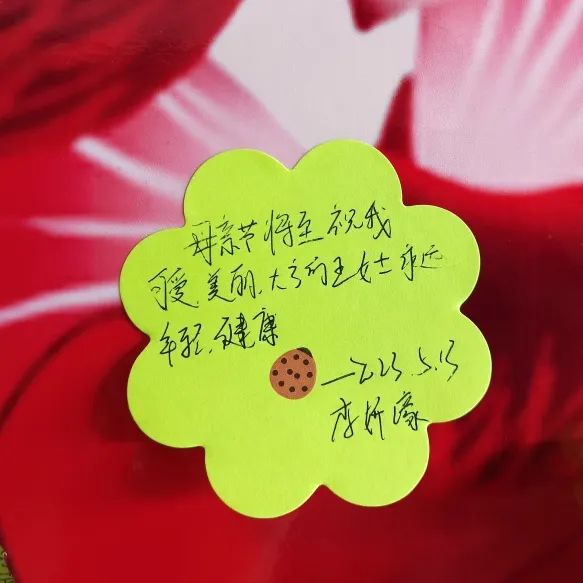 母亲节将至 祝我
可爱、美丽、大方的王女士永远
年轻、健康
—2023.5.13
李妍